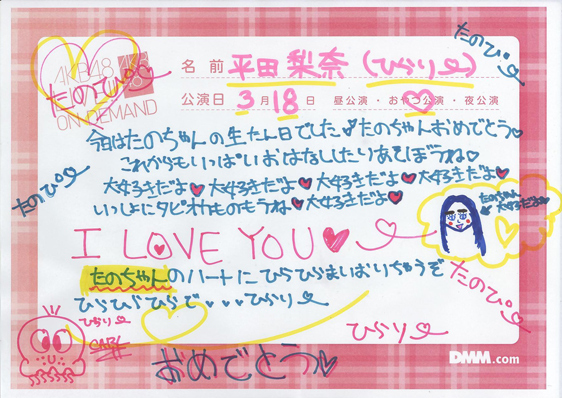 AKB48
LIVE!!
ON DEMAND
AKB48
たのぴ♡
名前 平田梨奈(ひらりー)
公演日 3月18日 昼公演・おやつ公演・夜公演
たのぴ♡
今日はたのちゃんの生たん日でした♪たのちゃんおめでとう♡
これからもいっぱいおはなししたりあそぼうね♡
大好きだよ♥大好きだよ♥大好きだよ♥大好きだよ♥
いっしょにタピオカものもうね♥大好きだよ♥
たのぴ♡
たのちゃん
大好きだよ♡
I LOVE YOU♥
たのちゃんのハートにひらひらまいおりちゅうぞ
ひらひらひらで♥♥♥ひらり
たのぴ♡
ひらりー
ひらりー
おめでとう♡
DMM.com